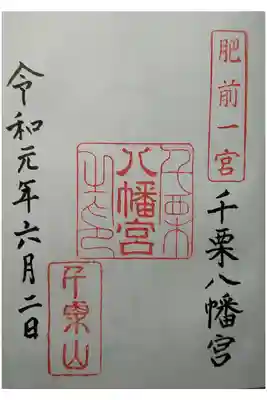 肥前一宮
千栗八幡宮
八幡宮
千栗山
令和元年六月二日